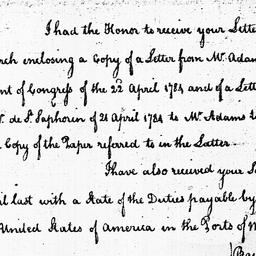 I had the Honor to receive your Lette
rch enclosing a Copy of a Letter from Mr. Adam
nt of Congress of the 22d April 1784 and of a Le
. de St. Saphorin of 21 April 1784 to Mr. Adams t
Copy of the Paper referred to in the Latter.
I have also received your
il last with a State of the Duties payable by
United States of America in the Ports of